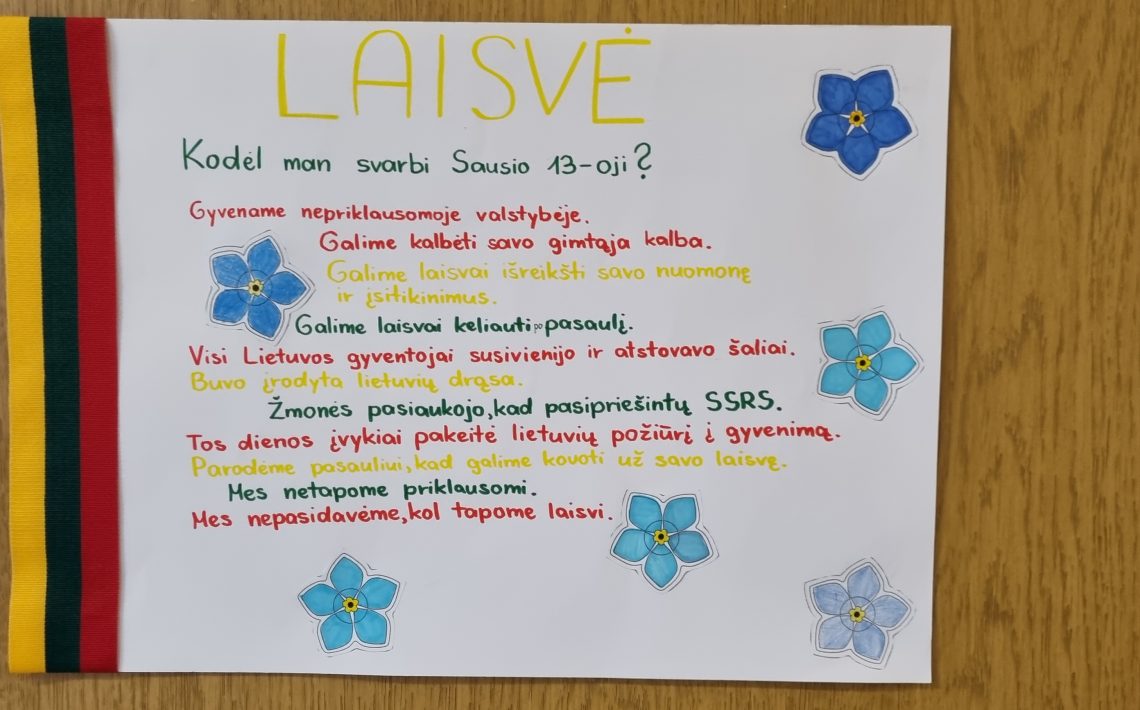 LAISVĖ
Kodėl man svarbi Sausio 13-oji?
Gyvename nepriklausomoje valstybėje.
Galime kalbėti savo gimtąja kalba.
Galime laisvai išreikšti savo nuomonę
ir įsitikinimus.
Galime laisvai keliauti po pasaulį.
Visi Lietuvos gyventojai susivienijo ir atstovavo šaliai.
Buvo įrodyta lietuvių drąsa.
Žmonės pasiaukojo,kad pasipriešintų SSRS.
Tos dienos įvykiai pakeitė lietuvių požiūrį į gyvenimą.
Parodėme pasauliui,kad galime kovoti už savo laisvę.
Mes netapome priklausomi.
Mes nepasidavėme,kol tapome laisvi.